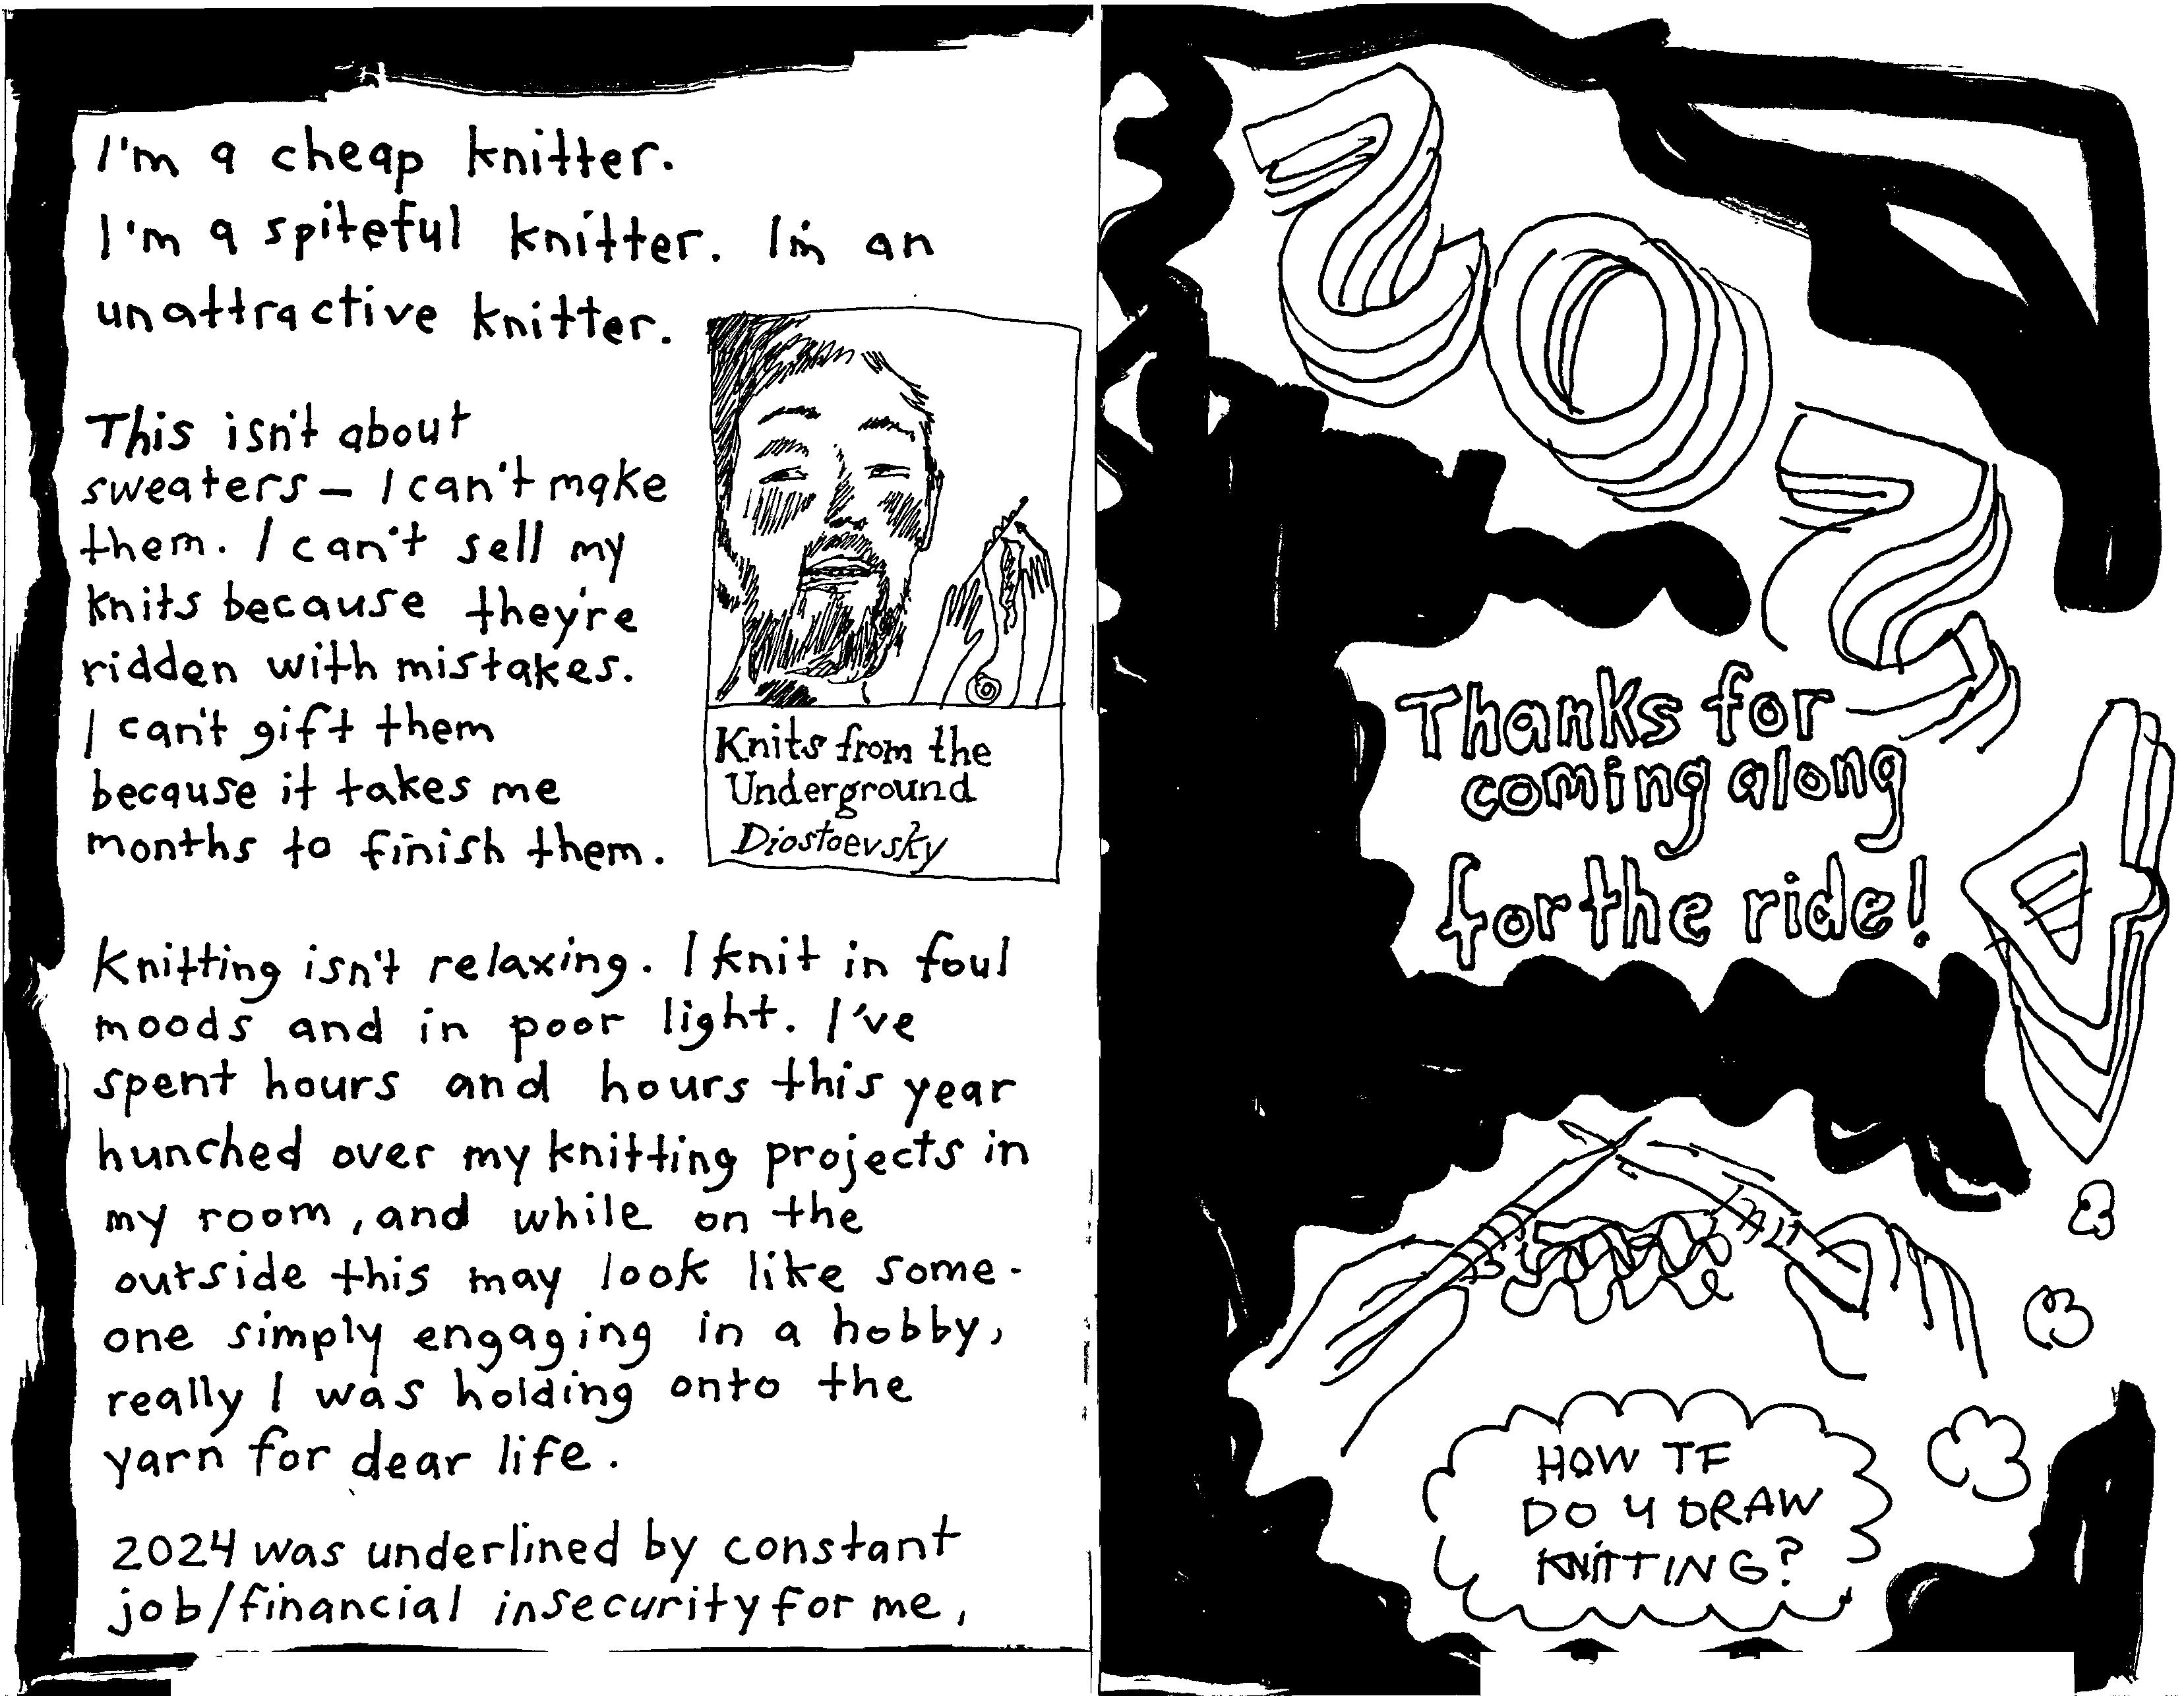 I'm a cheap knitter.
I'm a spiteful knitter. I'm an
unattractive knitter.
This isn't about
sweaters — I can't make
them. I can't sell my
knits because they're
ridden with mistakes.
I can't gift them
because it takes me
months to finish them.
Knits from the
Underground
Diostoevsky
Knitting isn't relaxing. I knit in foul
moods and in poor light. I've
spent hours and hours this year
hunched over my knitting projects in
my room, and while on the
outside this may look like some-
one simply engaging in a hobby,
really I was holding onto the
yarn for dear life.
2024 was underlined by constant
job/financial insecurity for me,
2024
Thanks for
coming along
for the ride!
HOW TF
DO U DRAW
KNITTING?